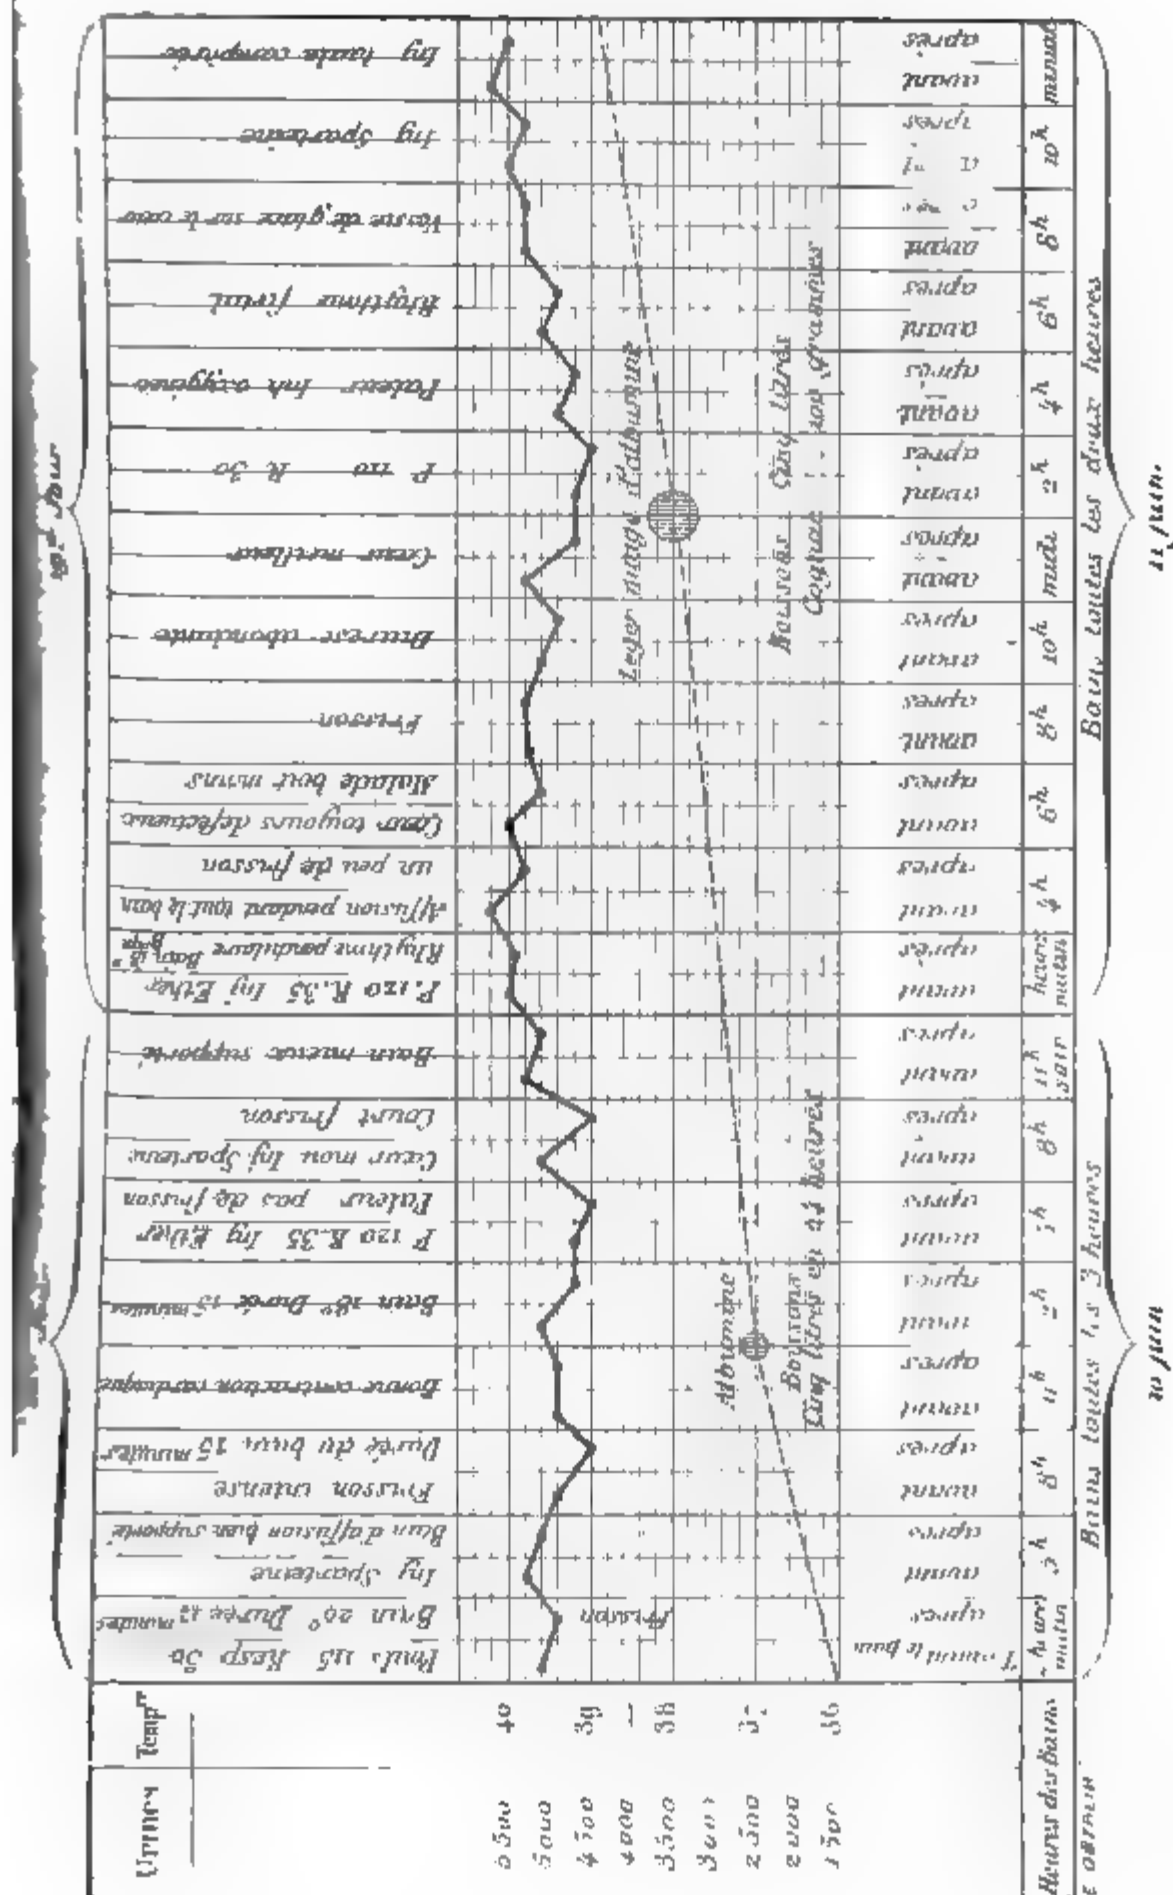 Jour
Urines
Temp
Pouls 115 Resp 30
Bain 20° Durée 12 minutes
Inj Sparteine
Bain d'affusion bien supporté
Frisson intense
Durée du bain 15 minutes
Bonne contraction cardiaque
Bain 18° Durée 15 minutes
P 120 R.35 Inj Ether
Paleur pas de frisson
Cœur mou Inj Sparteine
Court frisson
Bain mieux supporté
P. 120 R.35 Inj Ether
Rhythme pendulaire
Affusion pendant tout le bain
un peu de frisson
Cœur toujours defectueux
Malade boit moins
Frisson
Diurese abondante
Cœur meilleur
P 110 R 30
Paleur Inh oxygénée
Rhythme fœtal
Vessie de glace sur le cœur
Inj Sparteine
Inj huile camphrée
5500
5000
4500
4000
3500
3000
2500
2000
1500
40
39
38
36
Frisson
Albumine
Boissons
Cinq litres en 24 heures
Leger nuage d'albumine
Boissons Cinq litres
Cognac 100 grammes
avant le bain
après
avant
après
avant
après
avant
après
avant
après
avant
après
avant
après
avant
après
avant
après
avant
après
avant
après
avant
après
avant
après
avant
après
avant
après
avant
après
avant
après
avant
après
avant
après
avant
après
Heures des Bains
matin
5h
8h
11h
2h
5h
8h
11h
soir
heures
matin
4h
6h
8h
10h
midi
2h
4h
6h
8h
10h
minuit
Bains toutes les 3 heures
Bains toutes les deux heures
10 Juin
11 Juin